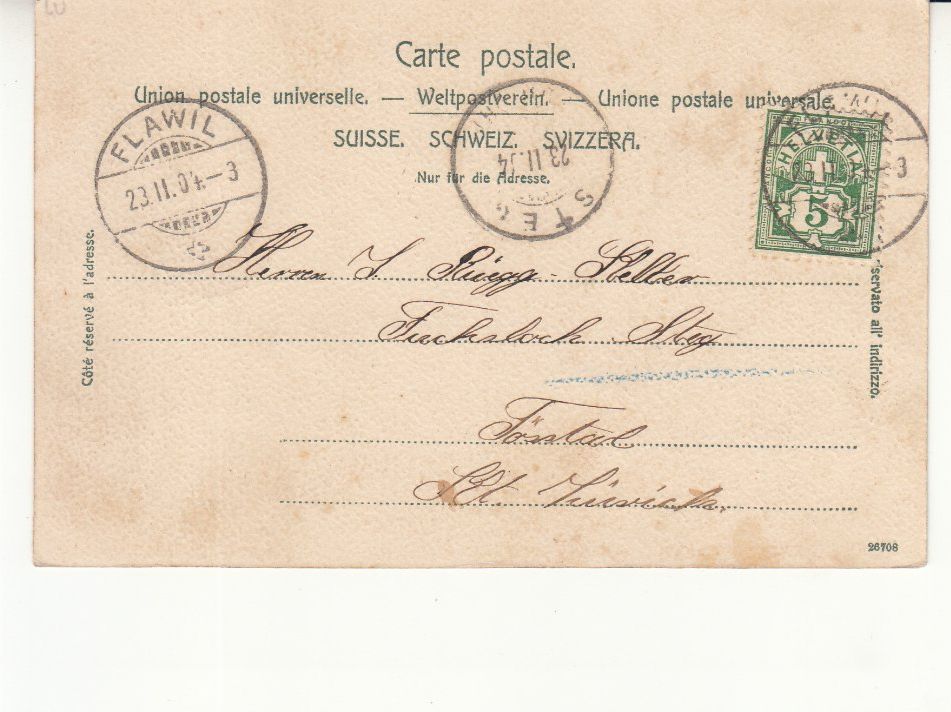 Carte postale.
Union postale universelle. — Weltpostverein. — Unione postale universale.
SUISSE. SCHWEIZ. SVIZZERA.
Nur für die Adresse.
FLAWIL
23.II.04.–3
STEG
23.II.04
HELVETIA
5
3
Côté réservé à l'adresse.
iservato all' indirizzo.
Herrn J. Rüegg-
Fuchsloch Steg
Tösstal
Kt. Zürich.
26708